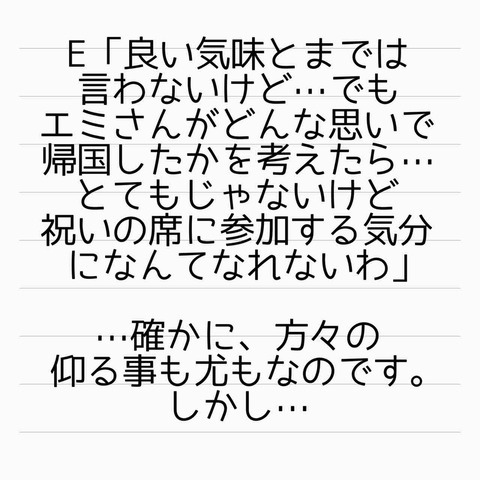 E「良い気味とまでは
言わないけど…でも
エミさんがどんな思いで
帰国したかを考えたら…
とてもじゃないけど
祝いの席に参加する気分
になんてなれないわ」
…確かに、方々の
仰る事も尤もなのです。
しかし…